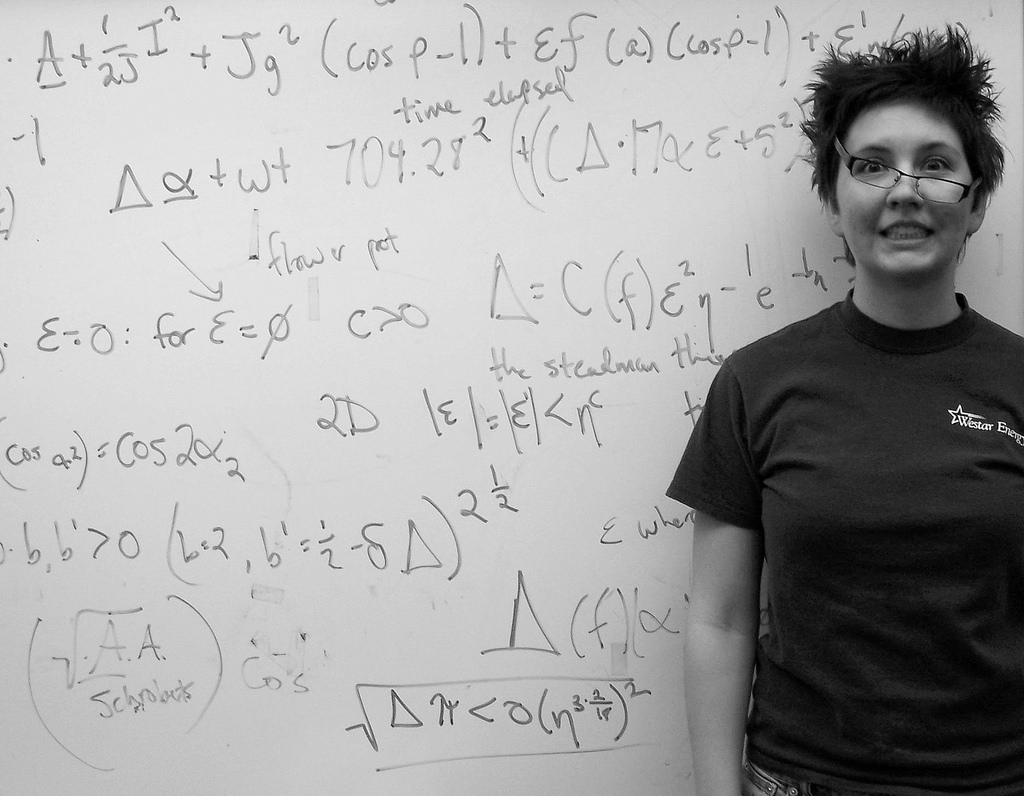 · A + 1/2J I² + Jg² (cos p - 1) + εf (a) (cos p - 1) + ε'
time elapsed
-1
Δ α + wt 704.28² + ((Δ · 17α ε + 5²)
flower pot
Δ = C (f) ε² η - 1 e
ε = 0 : for ε = ∅ c > 0
the steadman
2D |ε| = |ε| < η^c
(cos a·2) = cos 2α₂
b, b' > 0 (b = 2, b' = 1/2 - δ Δ) 2^1/2
ε where
Δ (f) (α
(√·A·A.
Schroberts)
Cos
√Δ π < 0 (η^3·2/18)²
Westar Energy